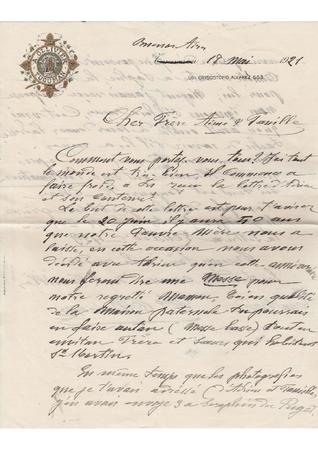 COLLIVADINO
PUGOURAL
Buenos Aires
18 Mai 1921
DR. CRISOSTOMO ALVAREZ 663
Cher Frère Aimé & Famille
Comment vous portez vous, tous? Ici tout
le monde est très bien, il commence a
faire froid, a Bs reçu la lettre d'Adrien
et son contenu.
Le but de cette lettre est pour t'aviser
que le 20 Juin il y aura 50 ans
que notre Pauvre Mère nous a
laissé, en cette occasion nous avons
décidé avec Adrien qu'en cette anniversaire
nous ferons dire une Messe pour
notre regretté Maman,
de la Maison paternelle tu pourrais
en faire autan (Messe basse) d'autan
Frère et Sœurs qui habitent
St Martin.
En même temps que les photografies
que je t'avais adressé d'Adrien et Famille,
j'en avais envoyé 3 a Seraphin du Puget